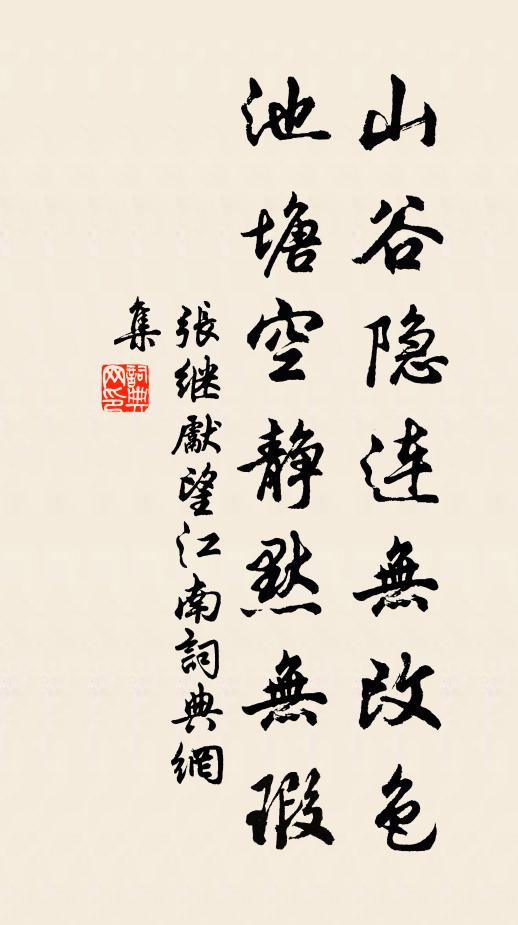 山谷隐连無改色
池塘空静默無瑕
張继獻望江南詞典網
集
詞典
网印